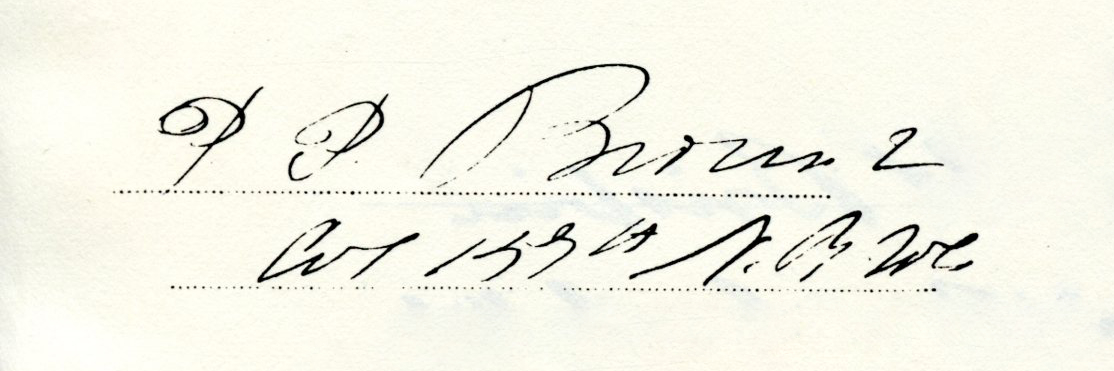 P P Brown
Col 157th N. Y. Vol.